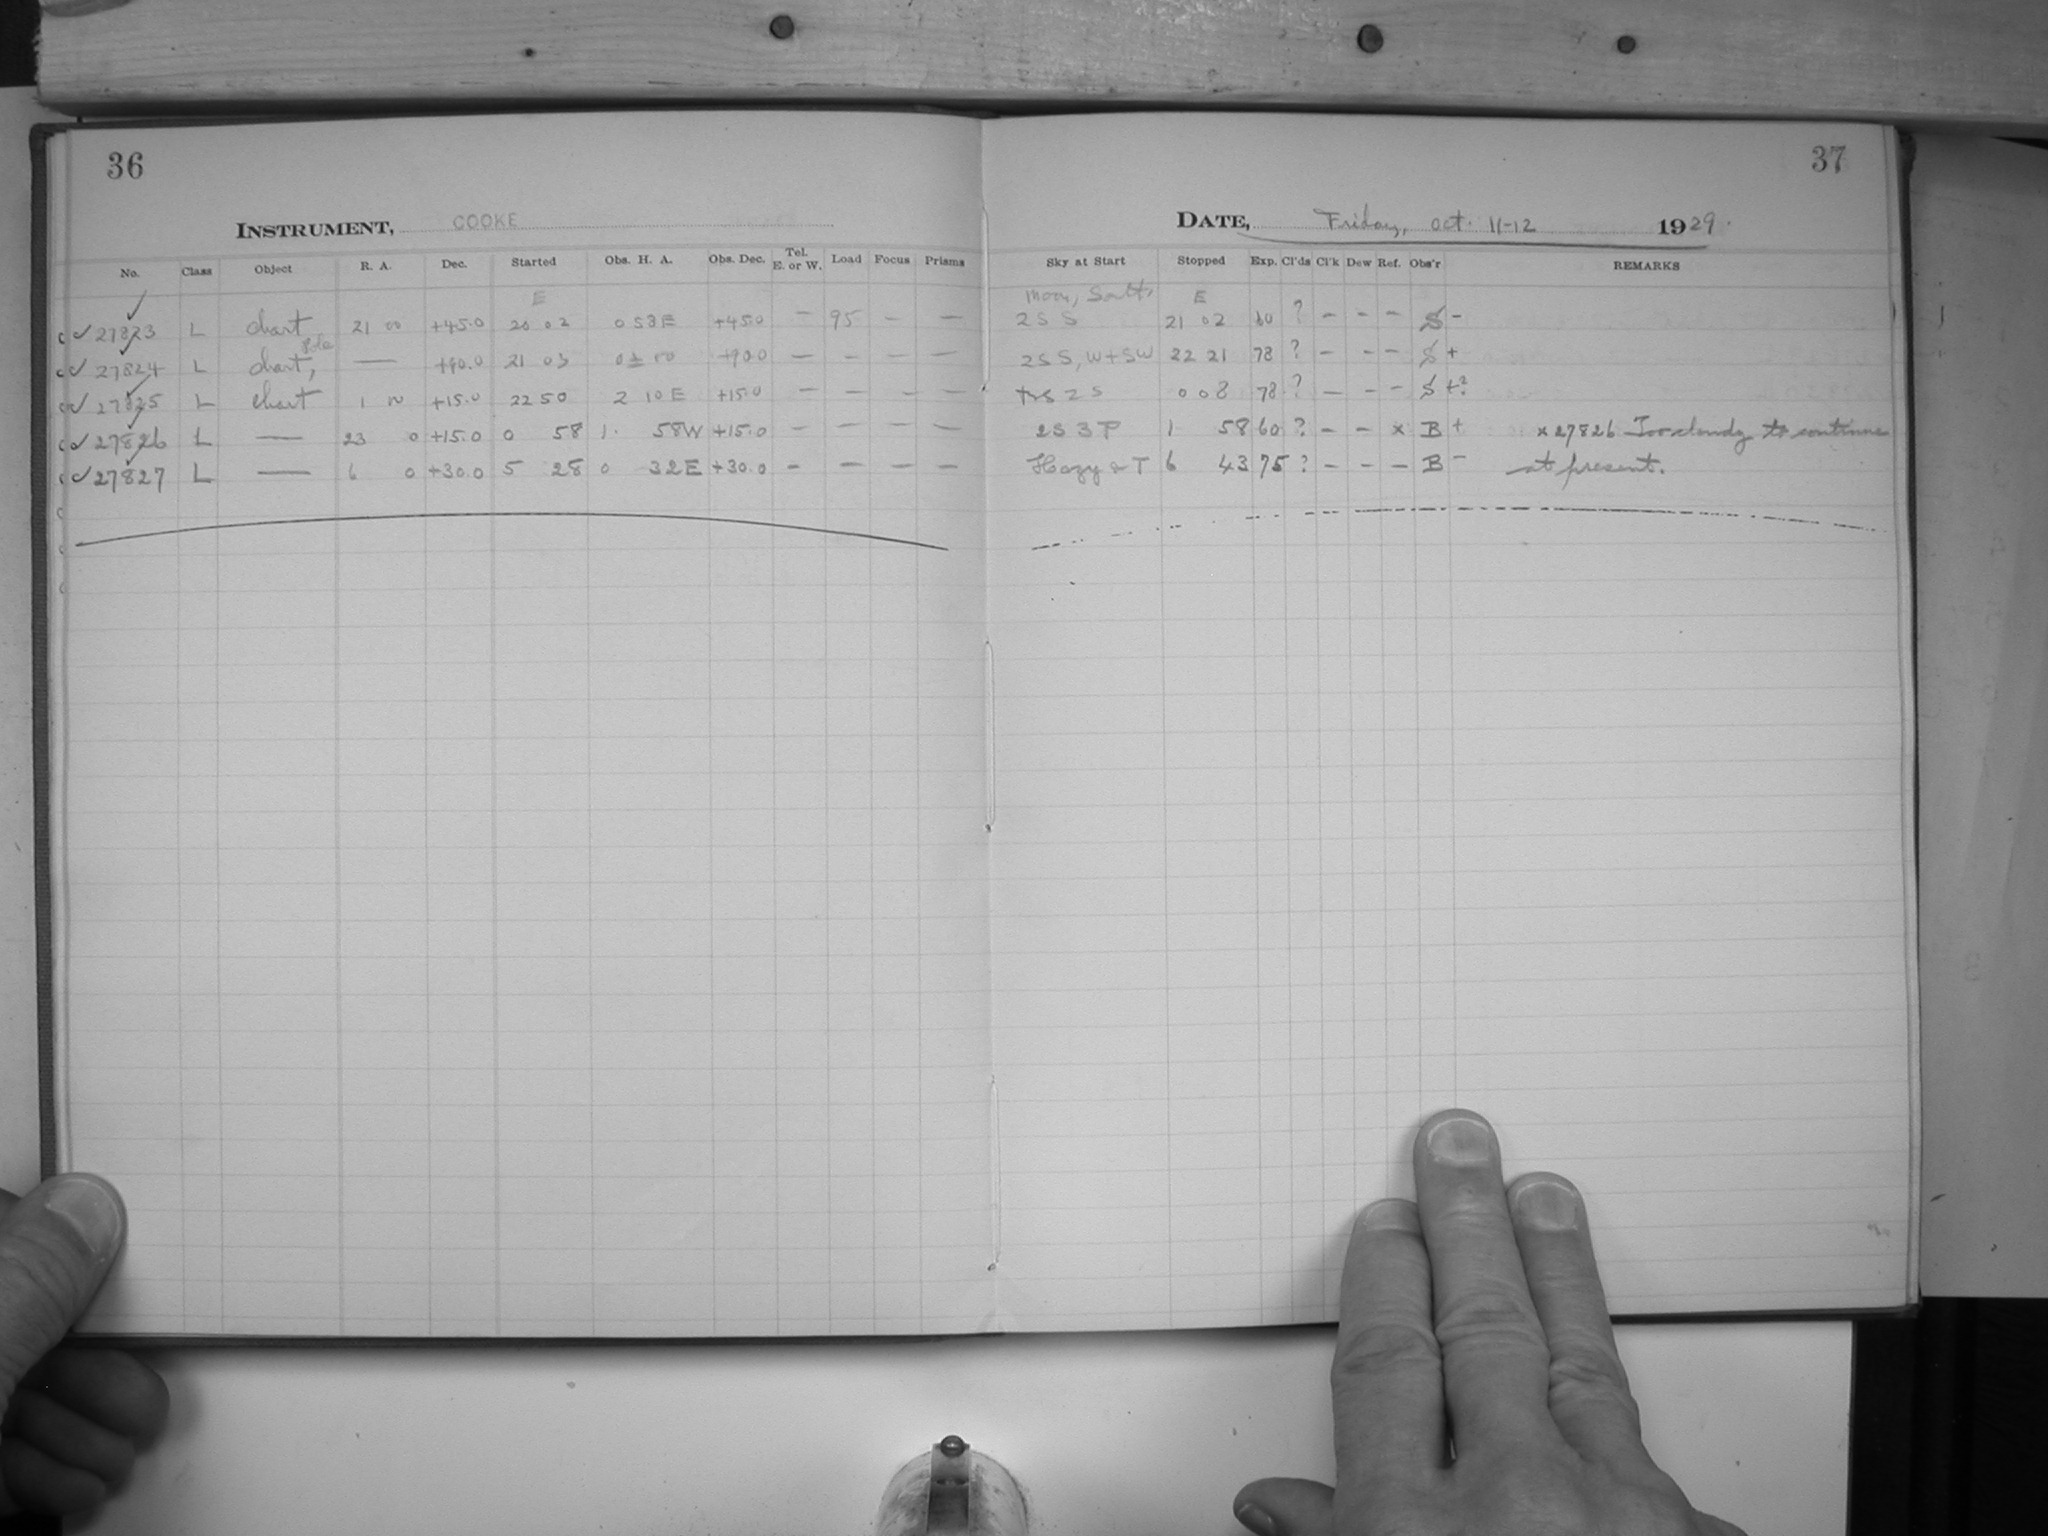 36
37
INSTRUMENT, COOKE
DATE, Friday, Oct. 11-12 1929.
No. Class Object R. A. Dec. Started Obs. H. A. Obs. Dec. Tel. E. or W. Load Focus Prisms Sky at Start Stopped Exp. Cl'ds Cl'k Dew Ref. Obs'r REMARKS
E Moon, South E
✓ 27823 L chart 21 00 +45.0 20 02 0 53 E +45.0 — 95 — — 2 S S 21 02 60 ? — — — S -
✓ 27824 L chart, Pole — +90.0 21 03 +90.0 — — — — 2 S S, W + SW 22 21 78 ? — — — S +
✓ 27825 L chart 1 +15.0 22 50 2 10 E +15.0 — — — — 2 S 0 08 78 ? — — — S +?
✓ 27826 L — 23 0 +15.0 0 58 1 58W +15.0 — — — — 2 S 3 P 1 58 60 ? — — x B + x 27826 Too cloudy to continue
✓ 27827 L — 6 0 +30.0 5 28 0 32E +30.0 — — — — Hazy & T 6 43 75 ? — — — B - at present.